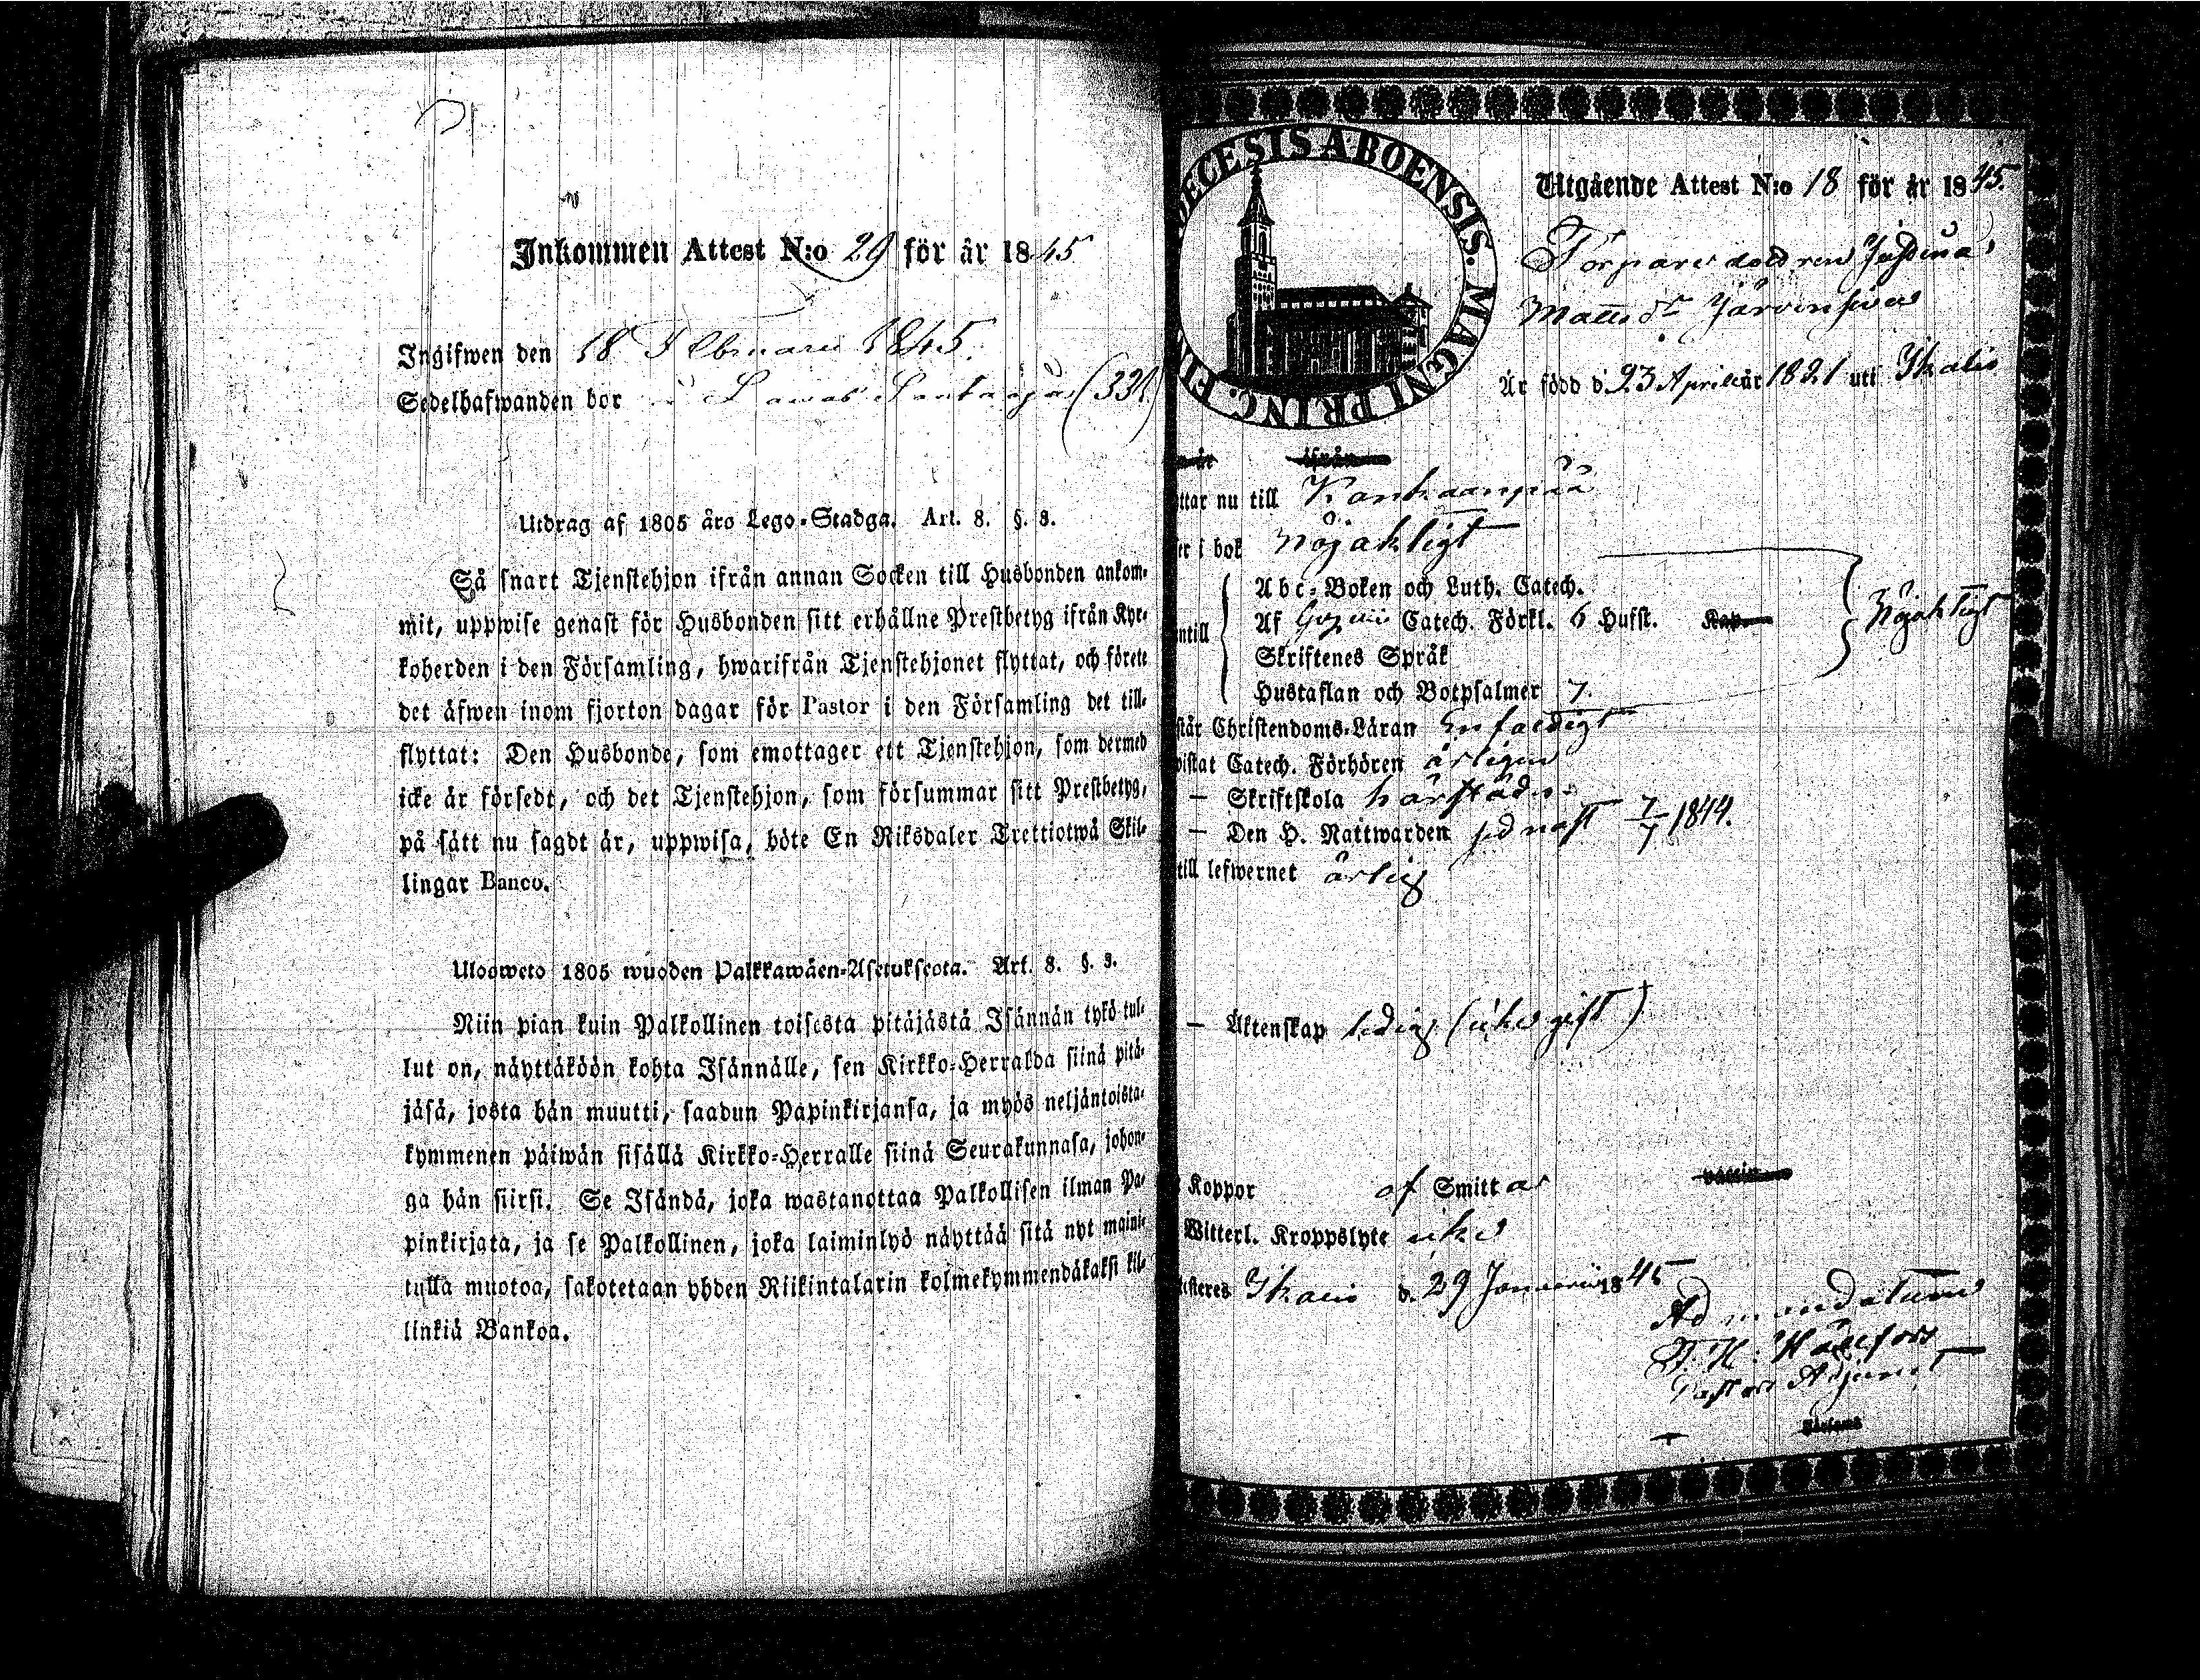 Inkommen Attest N:o 29 för år 1845
Ingifwen den 18 Februarii 1845.
Sedelhafwanden bor (332)
Utdrag af 1805 års Lego-Stadga. Art. 8. §. 3.
Så snart Tjenstehjon ifrån annan Socken till Husbonden ankom-
mit, uppwise genast för Husbonden sitt erhållne Prestbetyg ifrån Kyr-
koherden i den Församling, hwarifrån Tjenstehjonet flyttat, och förete
det äfwen inom fjorton dagar för Pastor i den Församling det till-
flyttat: Den Husbonde, som emottager ett Tjenstehjon, som dermed
icke är försedt, och det Tjenstehjon, som försummar sitt Prestbetyg,
på sätt nu sagdt är, uppwisa, böte En Riksdaler Trettiotwå Skil-
lingar Banco.
Ulosweto 1805 wuoden Palkkawäen-Asetuksesta. Art. 8. §. 3.
Niin pian kuin Palkollinen toisesta pitäjästä Isännän tykö tul-
lut on, näyttäköön kohta Isännälle, sen Kirkko-Herralda siinä pitä-
jäsä, josta hän muutti, saadun Papinkirjansa, ja myös neljäntoista-
kymmenen päiwän sisällä Kirkko-Herralle siinä Seurakunnasa, johon-
ga hän siirsi. Se Isändä, joka wastanottaa Palkollisen ilman Pa-
pinkirjata, ja se Palkollinen, joka laiminlyö näyttää sitä nyt maini-
tulla muotoa, sakotetaan yhden Riikintalarin kolmekymmendäkaksi kil-
linkiä Bankoa.
ECESIS ABOENSIS. MAGNI PRINC. FI
Utgående Attest N:o 18 för år 1845.
Torpare dottren Justina
Matts dr Järvensivu
Är född d. 23 Aprill år 1821 uti Ikalis
ifrån
ttar nu till Kankaanpää
er i bok nöjaktigt
ntill
Abc-Boken och Luth. Catech.
Af Catech. Förkl. 6 Hufst. Kap.
Skriftenes Språk
Hustaflan och Botpsalmer 7.
Nöjaktigt
står Christendoms-Läran Enfaldigt
istat Catech. Förhören årligen
— Skriftskola härstädes
— Den H. Nattwarden sednast 7/7 1844.
till lefwernet ärlig
— Äktenskap ledig (icke gift)
Koppor af Smittar
Witterl. Kroppslyte icke
esteres Ikalis d. 29 Januarii 1845
Ad mandatum
Hällfors
Pastors Adjunct